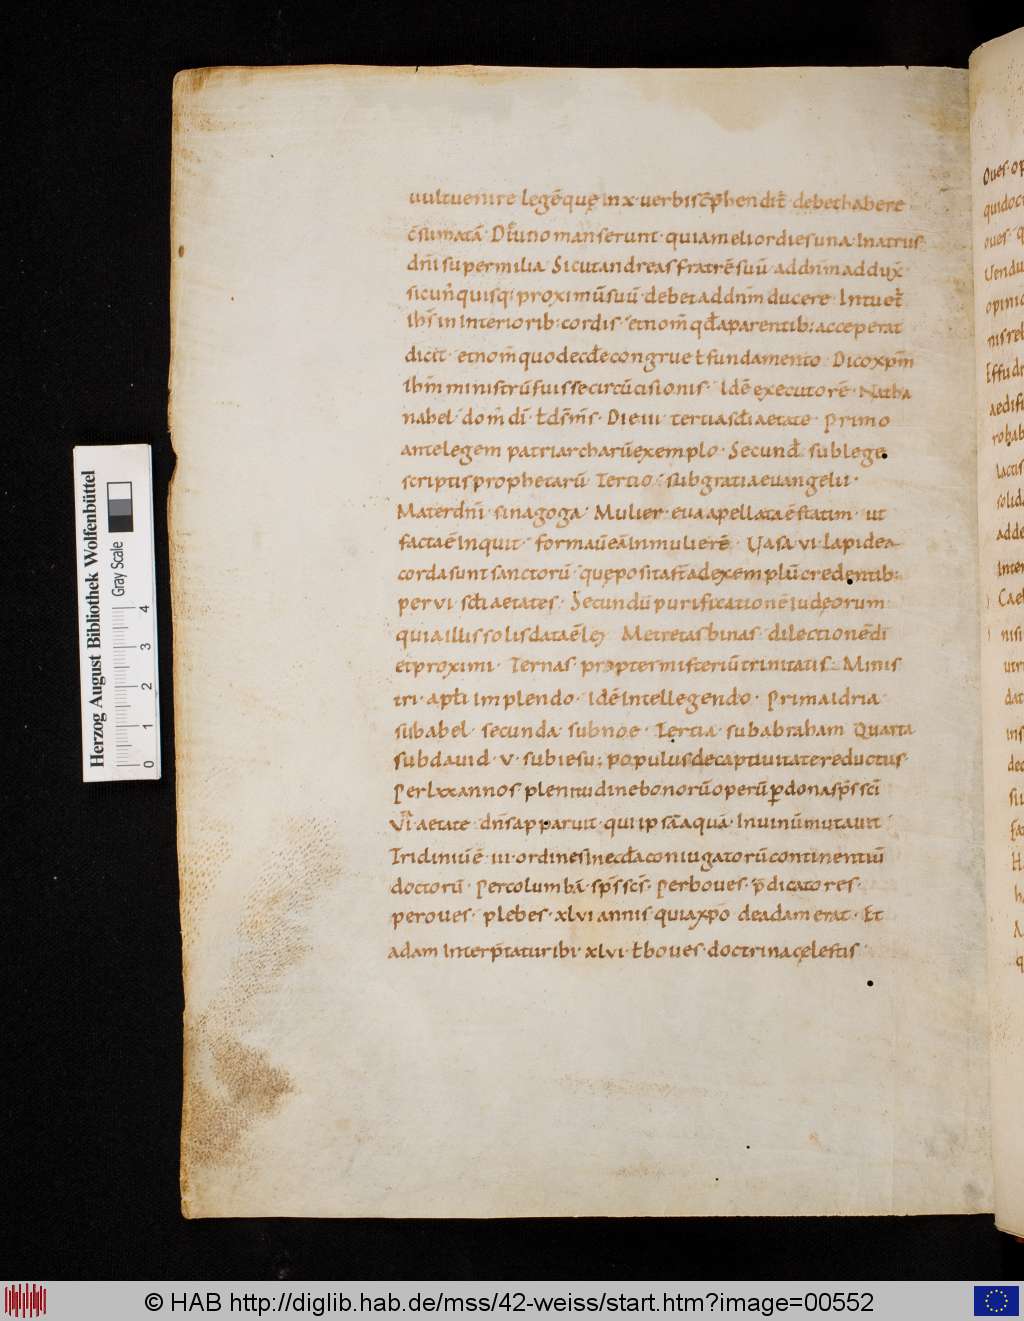 uultuenire legē quę in x uerbis c̄p̄hendit̄ debet habere
c̄sumatā · manserunt · quia melior dies una · in atrus
dn̄i super milia · Sicut andreas fratrē suū · ad dn̄m addux̄
sicun̄quisq; proximū suū · debet ad dn̄m ducere · Intuet̄
ih̄s in interiorib: cordis · et nom̄ qđ a parentib: acceperat
dicit · et nom̄ quodecđe congruet fundamento · Dico xp̄m
ih̄m ministrū fuisse circūcisionis · Idē executorē · Natha
nahel · dom̄ dī · Die iii · tertia sđi aetate · Primo
ante legem patriarcharū exemplo · Secunđ sub lege
scriptis prophetarū Tertio · sub gratia euangelii ·
Mater dn̄i · sinagoga · Mulier · eua apellata ē statim · ut
facta ē Inquit · formaū eā In mulierē · Uasa · vi · lapidea
corda sunt sanctorū · quę posita st̄ ad exemplū credentib:
per vi · sđi aetates · Secundū purificationē iudeorum
quia illis solis data ē lex Metretas binas dilectionē dī
et proximi · Ternas propter misteriū trinitatis · Minis
tri · apl̄i implendo · idē intellegendo · Prima idria
sub abel · secunda sub noe · Tertia · sub abraham Quarta
sub dauid · v · sub iesu; populus de captiuitate reductus ·
Per lxx annos plenitudine bonorū operū p dona sp̄s sc̄i
Vī aetate dn̄s apparuit · qui ipsā aquā · In uinū mutauit
Tricliniū ē · iii · ordines in ecđa coniugatorū continentiū
doctorū · Per columbā · sp̄s sc̄s · Per boues · p̄dicatores ·
per oues · plebes · xlvi annis quia xp̄o de adam erat · Et
adam Interp̄tatur ibi · xlvi · boues · doctrina cęlestis ·
Herzog August Bibliothek Wolfenbüttel
Gray Scale
0 1 2 3 4
© HAB http://diglib.hab.de/mss/42-weiss/start.htm?image=00552